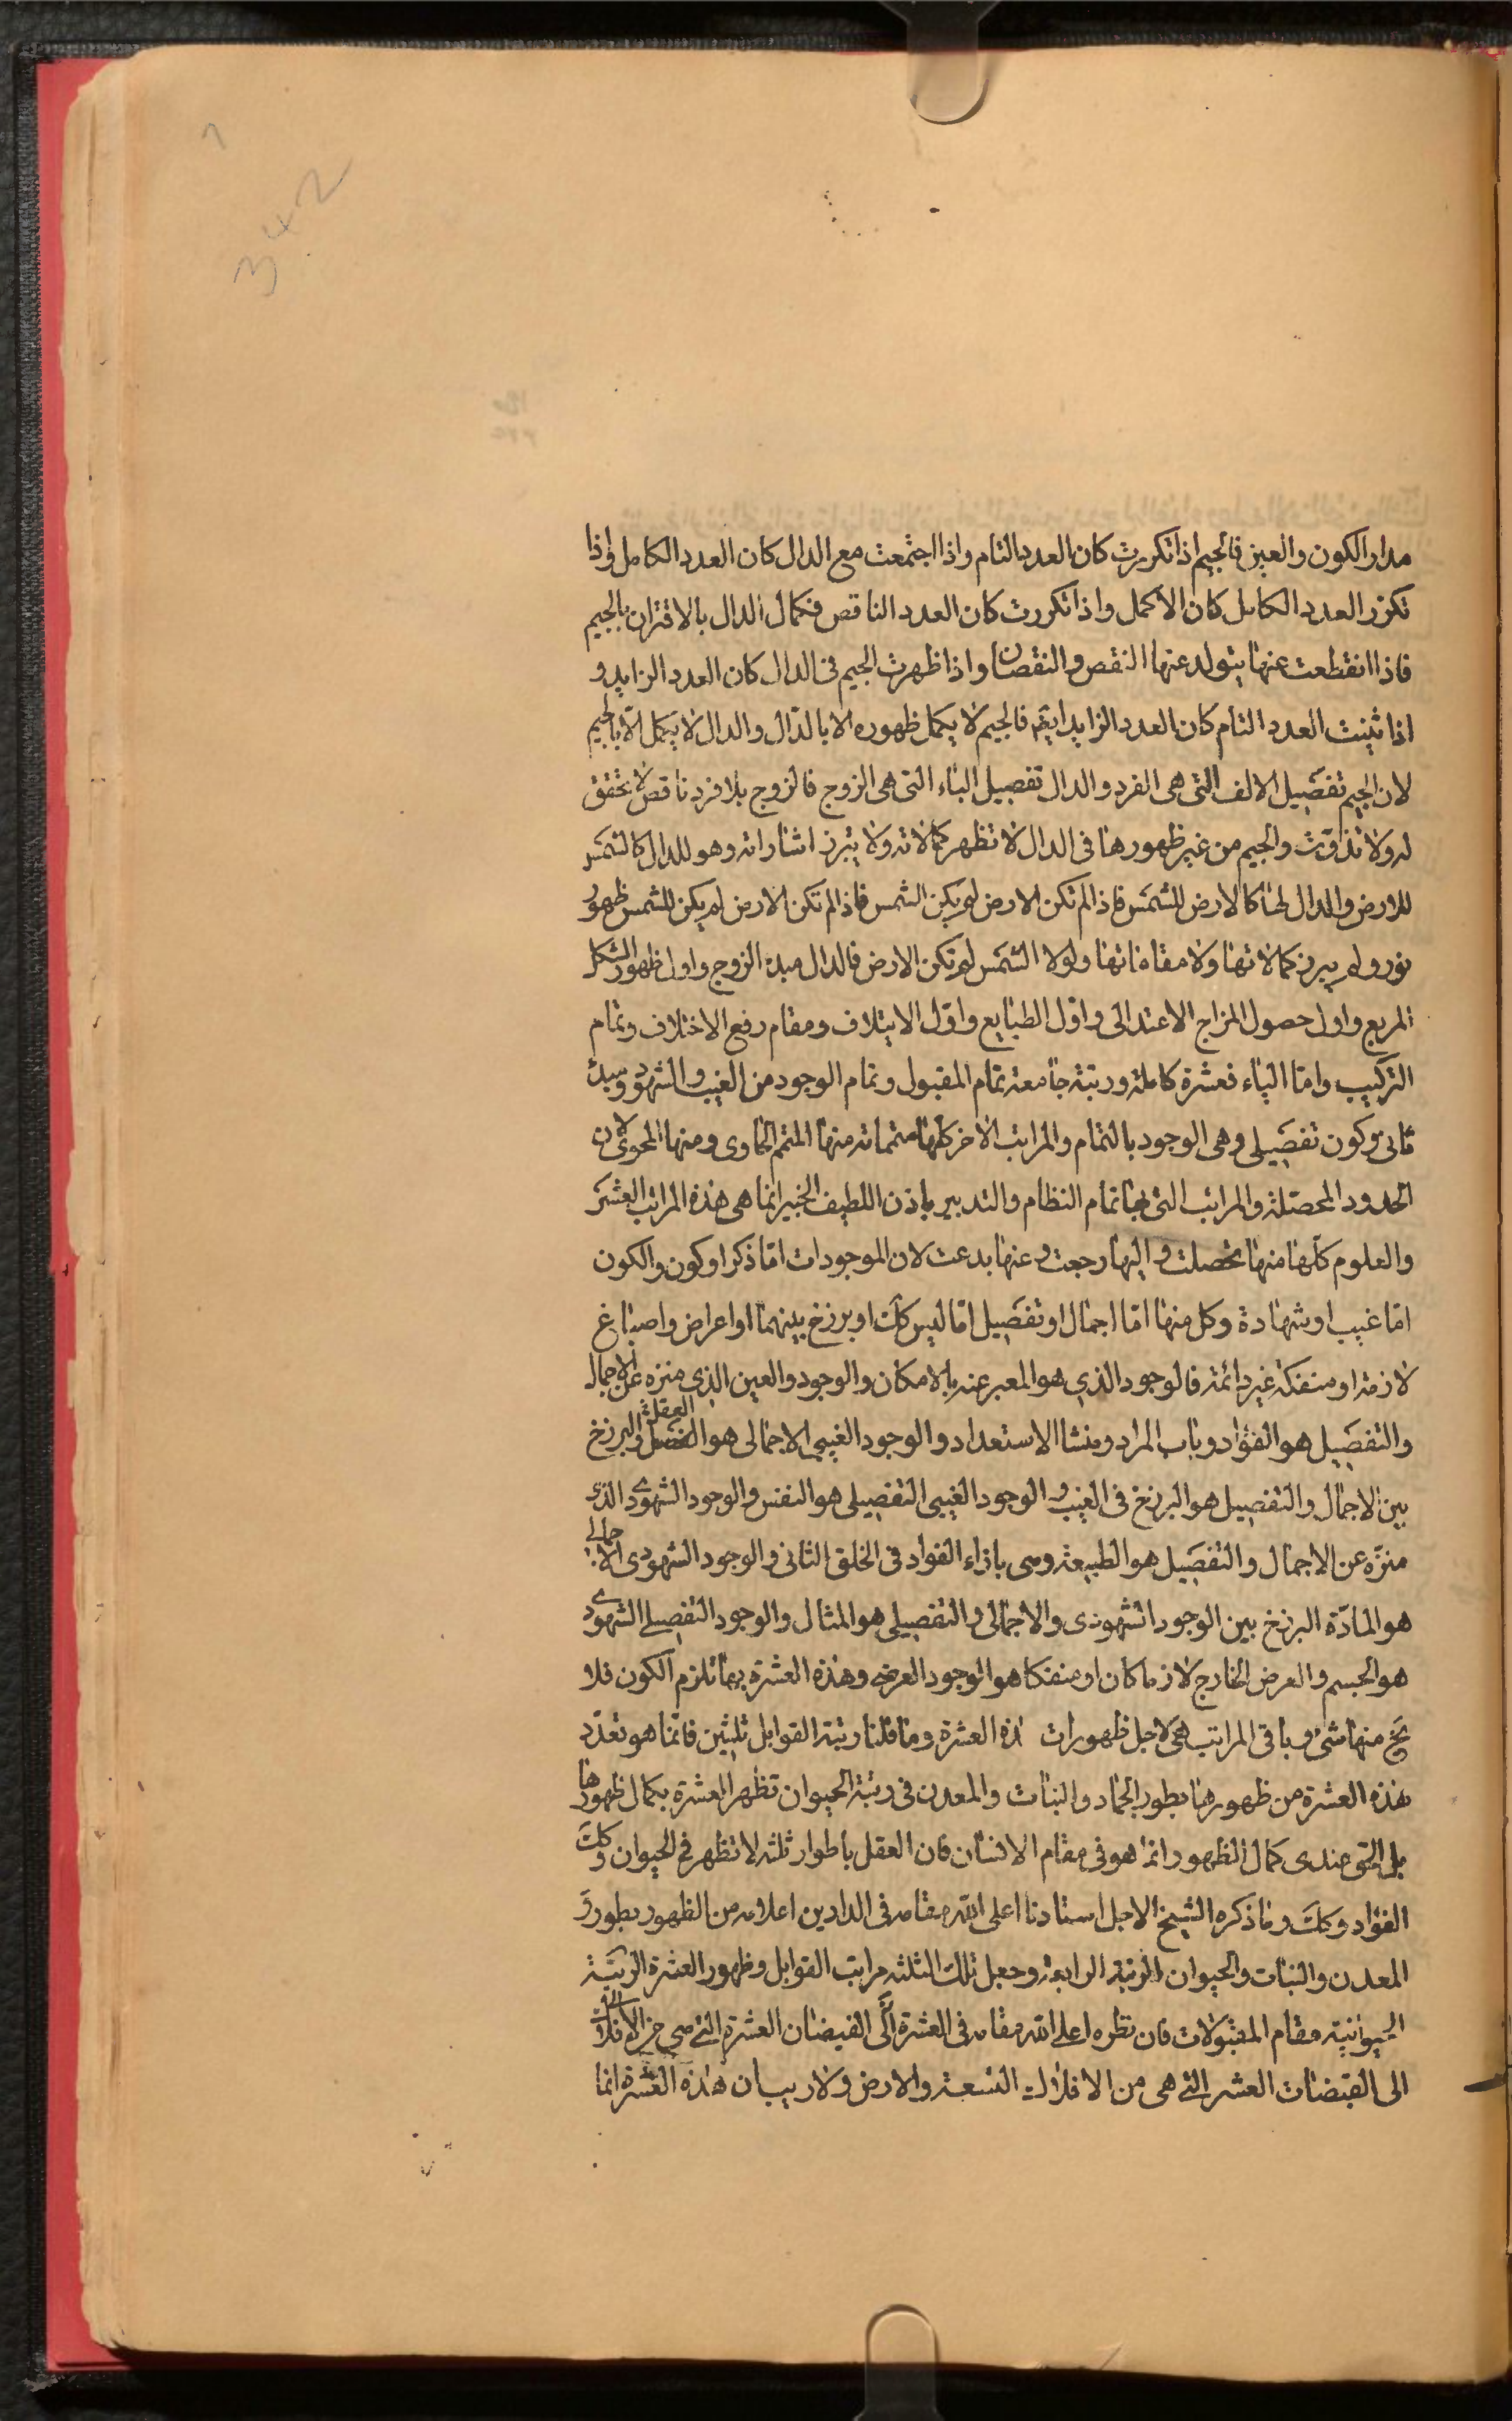 مدار الكون والعين فالجيم اذا تكررت كان العدد التام واذا اجتمعت مع الدال كان العدد الكامل واذا
تكرر العدد الكامل كان الاكمل واذا تكررت كان العدد الناقص فكمال الدال بالاقتران بالجيم
فاذا انقطعت عنها يتولد عنها النقص والنقصان واذا ظهرت الجيم فى الدال كان العدد الزايد و
اذا ثنيت العدد التام كان العدد الزايد ايضا فالجيم لا يكمل ظهوره الا بالدال والدال لا يكمل الا بالجيم
لان الجيم تفصيل الالف التى هى الفرد والدال تفصيل الباء التى هى الزوج فالزوج بلا فرد ناقص لا تحقق
له ولا تذوت والجيم من غير ظهورها فى الدال لا تظهر كمالاته ولا يتبرز اشاراته وهو للدال كالشمس
للارض والدال لها كالارض للشمس فاذا لم تكن الارض لم يكن الشمس فاذا لم تكن الارض لم يكن للشمس ظهور
نور ولم يبرز كمالاتها ولا مقاماتها ولولا الشمس لم تكن الارض فالدال مبدء الزوج واول ظهور الشكل
المربع واول حصول المزاج الاعتدالى واول الطبايع واول الايتلاف ومقام رفع الاختلاف وتمام
التركيب واما الياء فعشرة كاملة ورتبة جامعة تمام المقبول وتمام الوجود من الغيب والشهود ومبدء
ثانى وكون تفصيلى وهى الوجود بالتمام والمراتب الاخر كلها متممات منها المتمم الحاوى ومنها المحوى لان
الحدود المحصلة والمراتب التى بها تمام النظام والتدبير باذن اللطيف الخبير انما هى هذه المراتب العشر
والعلوم كلها منها تحصلت واليها رجعت وعنها بدعت لان الموجودات اما ذكر او كون والكون
اما غيب او شهادة وكل منها اما اجمال او تفصيل اما ليس كك او برزخ بينهما او اعراض واصباغ
لازمة او منفكة غير دائمة فالوجود الذي هو المعبر عنه بالامكان والوجود والعين الذي منزه عن الاجمال
والتفصيل هو الفؤاد وباب المراد ومنشا الاستعداد والوجود الغيبى الاجمالى هو العقل والبرزخ
بين الاجمال والتفصيل هو البرزخ فى الغيب والوجود الغيبى التفصيلى هو النفس والوجود الشهودى الذى
منزه عن الاجمال والتفصيل هو الطبيعة وهى بازاء الفواد فى الخلق الثانى والوجود الشهودى الاجمالى
هو المادة البرزخ بين الوجود الشهودى والاجمالى والتفصيلى هو المثال والوجود التفصيلى الشهودى
هو الجسم والعرض الخارج لازما كان او منفكا هو الوجود العرضى وهذه العشرة بها تلزم الكون فلا
يخ منها شىء وباقى المراتب هى لاجل ظهورات هذه العشرة وما قلنا رتبة القوابل ثلثين فانما هو تعدد
هذه العشرة من ظهورها بطور الجماد والنبات والمعدن فى رتبة الحيوان تظهر العشرة بكمال ظهورها
بل الحق عندى كمال الظهور انما هو فى مقام الانسان فان العقل باطوار ثلثه لا تظهر فى الحيوان وكك
الفؤاد وكك وما ذكره الشيخ الاجل استادنا اعلى الله مقامه فى الدارين اعلامه من الظهور بطور
المعدن والنبات والحيوان الرتبة الرابعة وجعل تلك الثلثه مراتب القوابل وظهور العشرة الرتبة
الحيوانية مقام المقبولات فان نظره اعلى الله مقامه فى العشرة الى القبضات العشرة التى هى من الافلاك
الى القبضات العشر التى هى من الافلاك التسعة والارض ولا ريب ان هذه العشرة انما